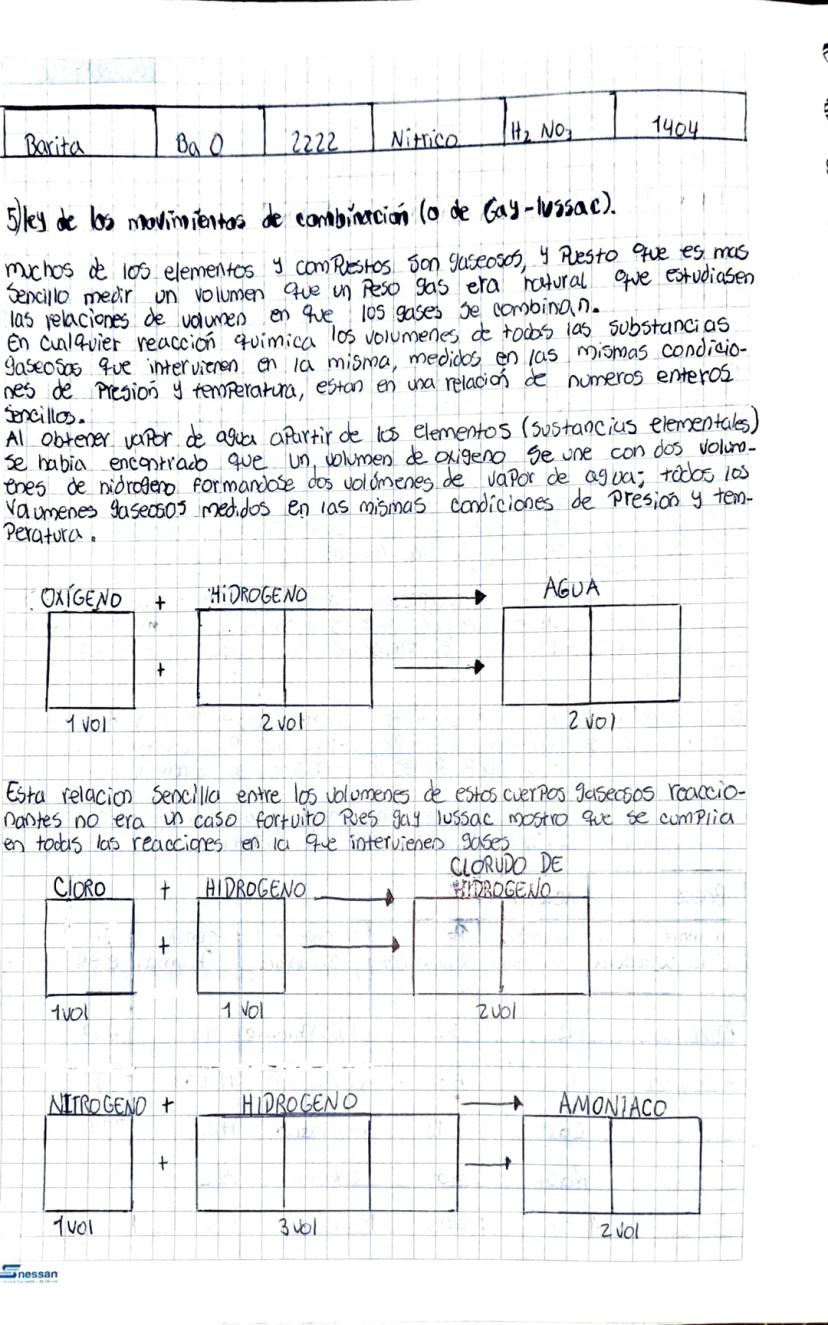 Barita Ba O 2222 Nitrico H2 NO3 1404
5) ley de los movimientos de combinación (o de Gay-lussac).
muchos de los elementos y compuestos son gaseosos, y puesto que es mas
sencillo medir un volumen que un peso gas era natural que estudiasen
las relaciones de volumen en que los gases se combinan.
En cualquier reacción química los volumenes de todas las substancias
gaseosas que intervienen en la misma, medidos en las mismas condicio-
nes de presion y temperatura, estan en una relación de numeros enteros
sencillos.
Al obtener vapor de agua apartir de los elementos (sustancias elementales)
se habia encontrado que un volumen de oxigeno se une con dos volum-
enes de hidrogeno formandose dos volúmenes de vapor de agua; todos los
volumenes gaseosos medidos en las mismas condiciones de presion y tem-
peratura.
OXÍGENO + HiDROGENO AGUA
+
1 vol 2 vol 2 vol
Esta relacion sencilla entre los volumenes de estos cuerpos gaseosos reaccio-
nantes no era un caso fortuito pues gay lussac mostro que se cumplia
en todas las reacciones en la que intervienen gases
CLORUDO DE
ClORO + HIDROGENO HIDROGENO
+
1 vol 1 vol 2 vol
NITROGENO + HIDROGENO AMONIACO
+
1 vol 3 vol 2 vol
nessan